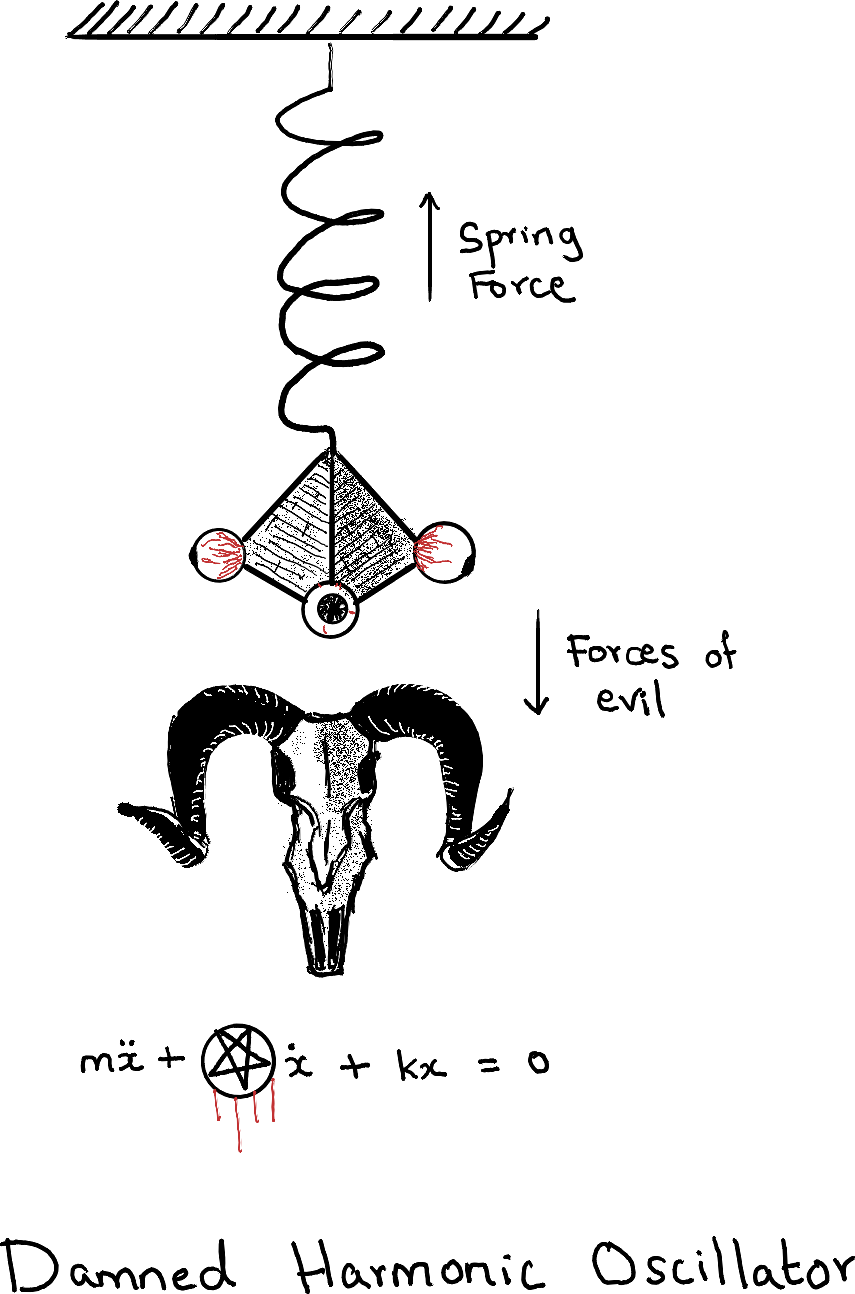 Spring
Force
Forces of
evil
mẍ + ⛧ ẋ + kx = 0
Damned Harmonic Oscillator